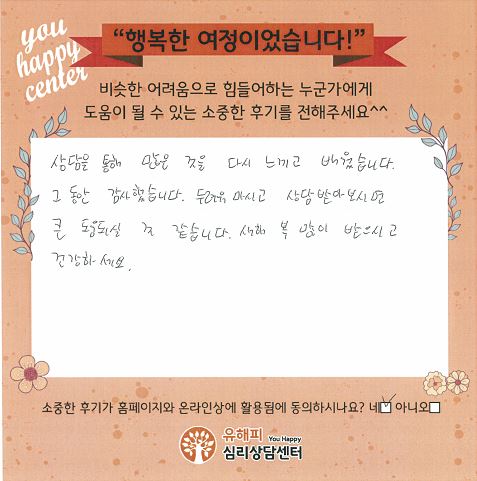 you
happy
center
“행복한 여정이었습니다!”
비슷한 어려움으로 힘들어하는 누군가에게
도움이 될 수 있는 소중한 후기를 전해주세요^^
상담을 통해 많은 것을 다시 느끼고 배웠습니다.
그 동안 감사했습니다. 두려워 마시고 상담받아보시면
큰 도움되실 것 같습니다. 새해 복 많이 받으시고
건강하세요.
소중한 후기가 홈페이지와 온라인상에 활용됨에 동의하시나요? 네☑ 아니오☐
유해피 You Happy
심리상담센터